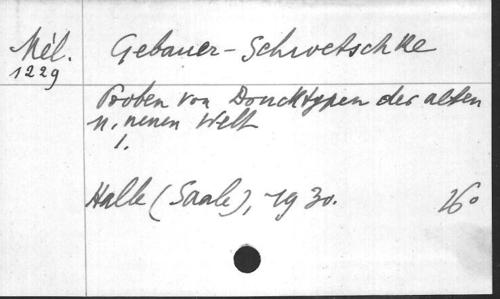 Mél. Gebauer-Schwetschke
1229
Proben von Drucktypen der alten
u. neuen Welt
1.
Halle (Saale), 1930. 16°